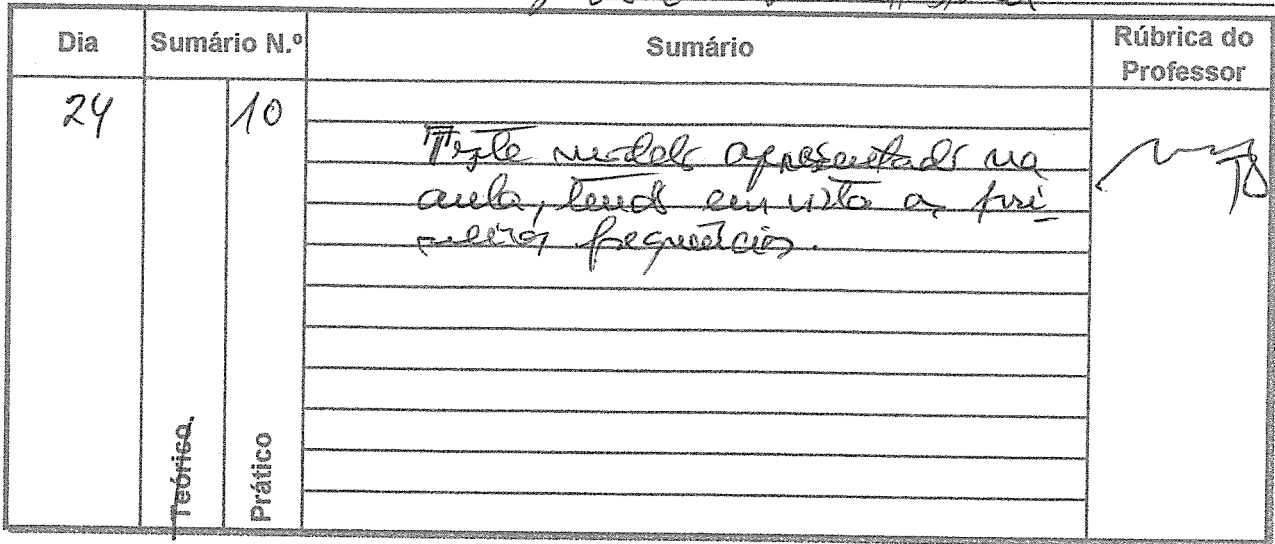 Dia Sumário N.º Sumário Rúbrica do Professor
24 10
Teste modelo apresentado na
aula, tendo em vista as pri-
meiras frequências.
Teórico
Prático